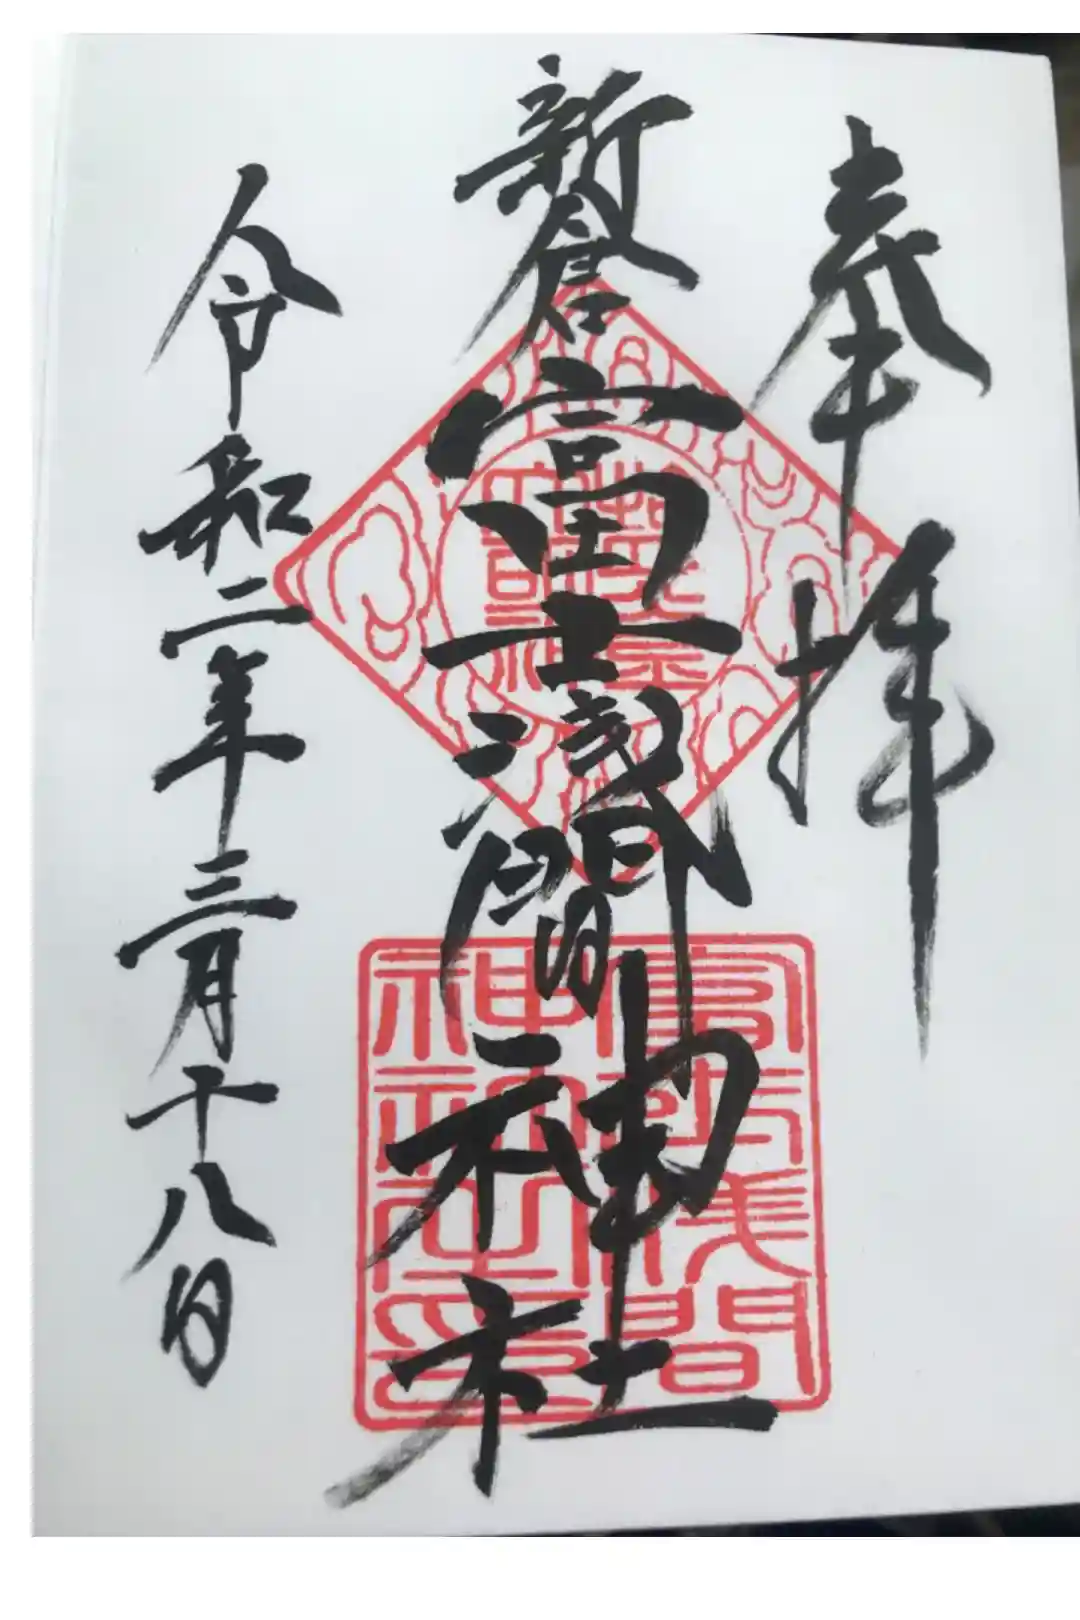 奉拝
新倉富士浅間神社
令和二年三月十八日
富士浅間
神社之印